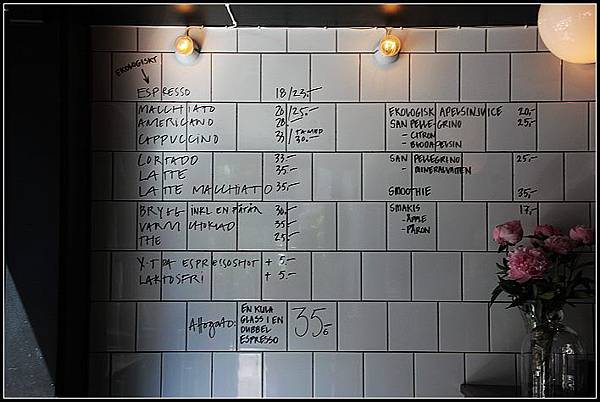 EKOLOGISKT
ESPRESSO 18/23:-
MACCHIATO 20/25:-
AMERICANO 28:-
CAPPUCCINO 33/TA MED 30:-
CORTADO 33:-
LATTE 35:-
LATTE MACCHIATO 35:-
BRYGG INKL EN PÅTÅR 30:-
VARM CHOKLAD 35:-
THE 25:-
X-TRA ESPRESSOSHOT + 5:-
LAKTOSFRI + 5:-
Affogato: EN KULA
GLASS I EN
DUBBEL
ESPRESSO
35:-
EKOLOGISK APELSINJUICE 20:-
SAN PELLEGRINO 25:-
- CITRON
- BLODAPELSIN
SAN PELLEGRINO 25:-
- MINERALVATTEN
SMOOTHIE 35:-
SMAKIS 17:-
- ÄPPLE
- PÄRON